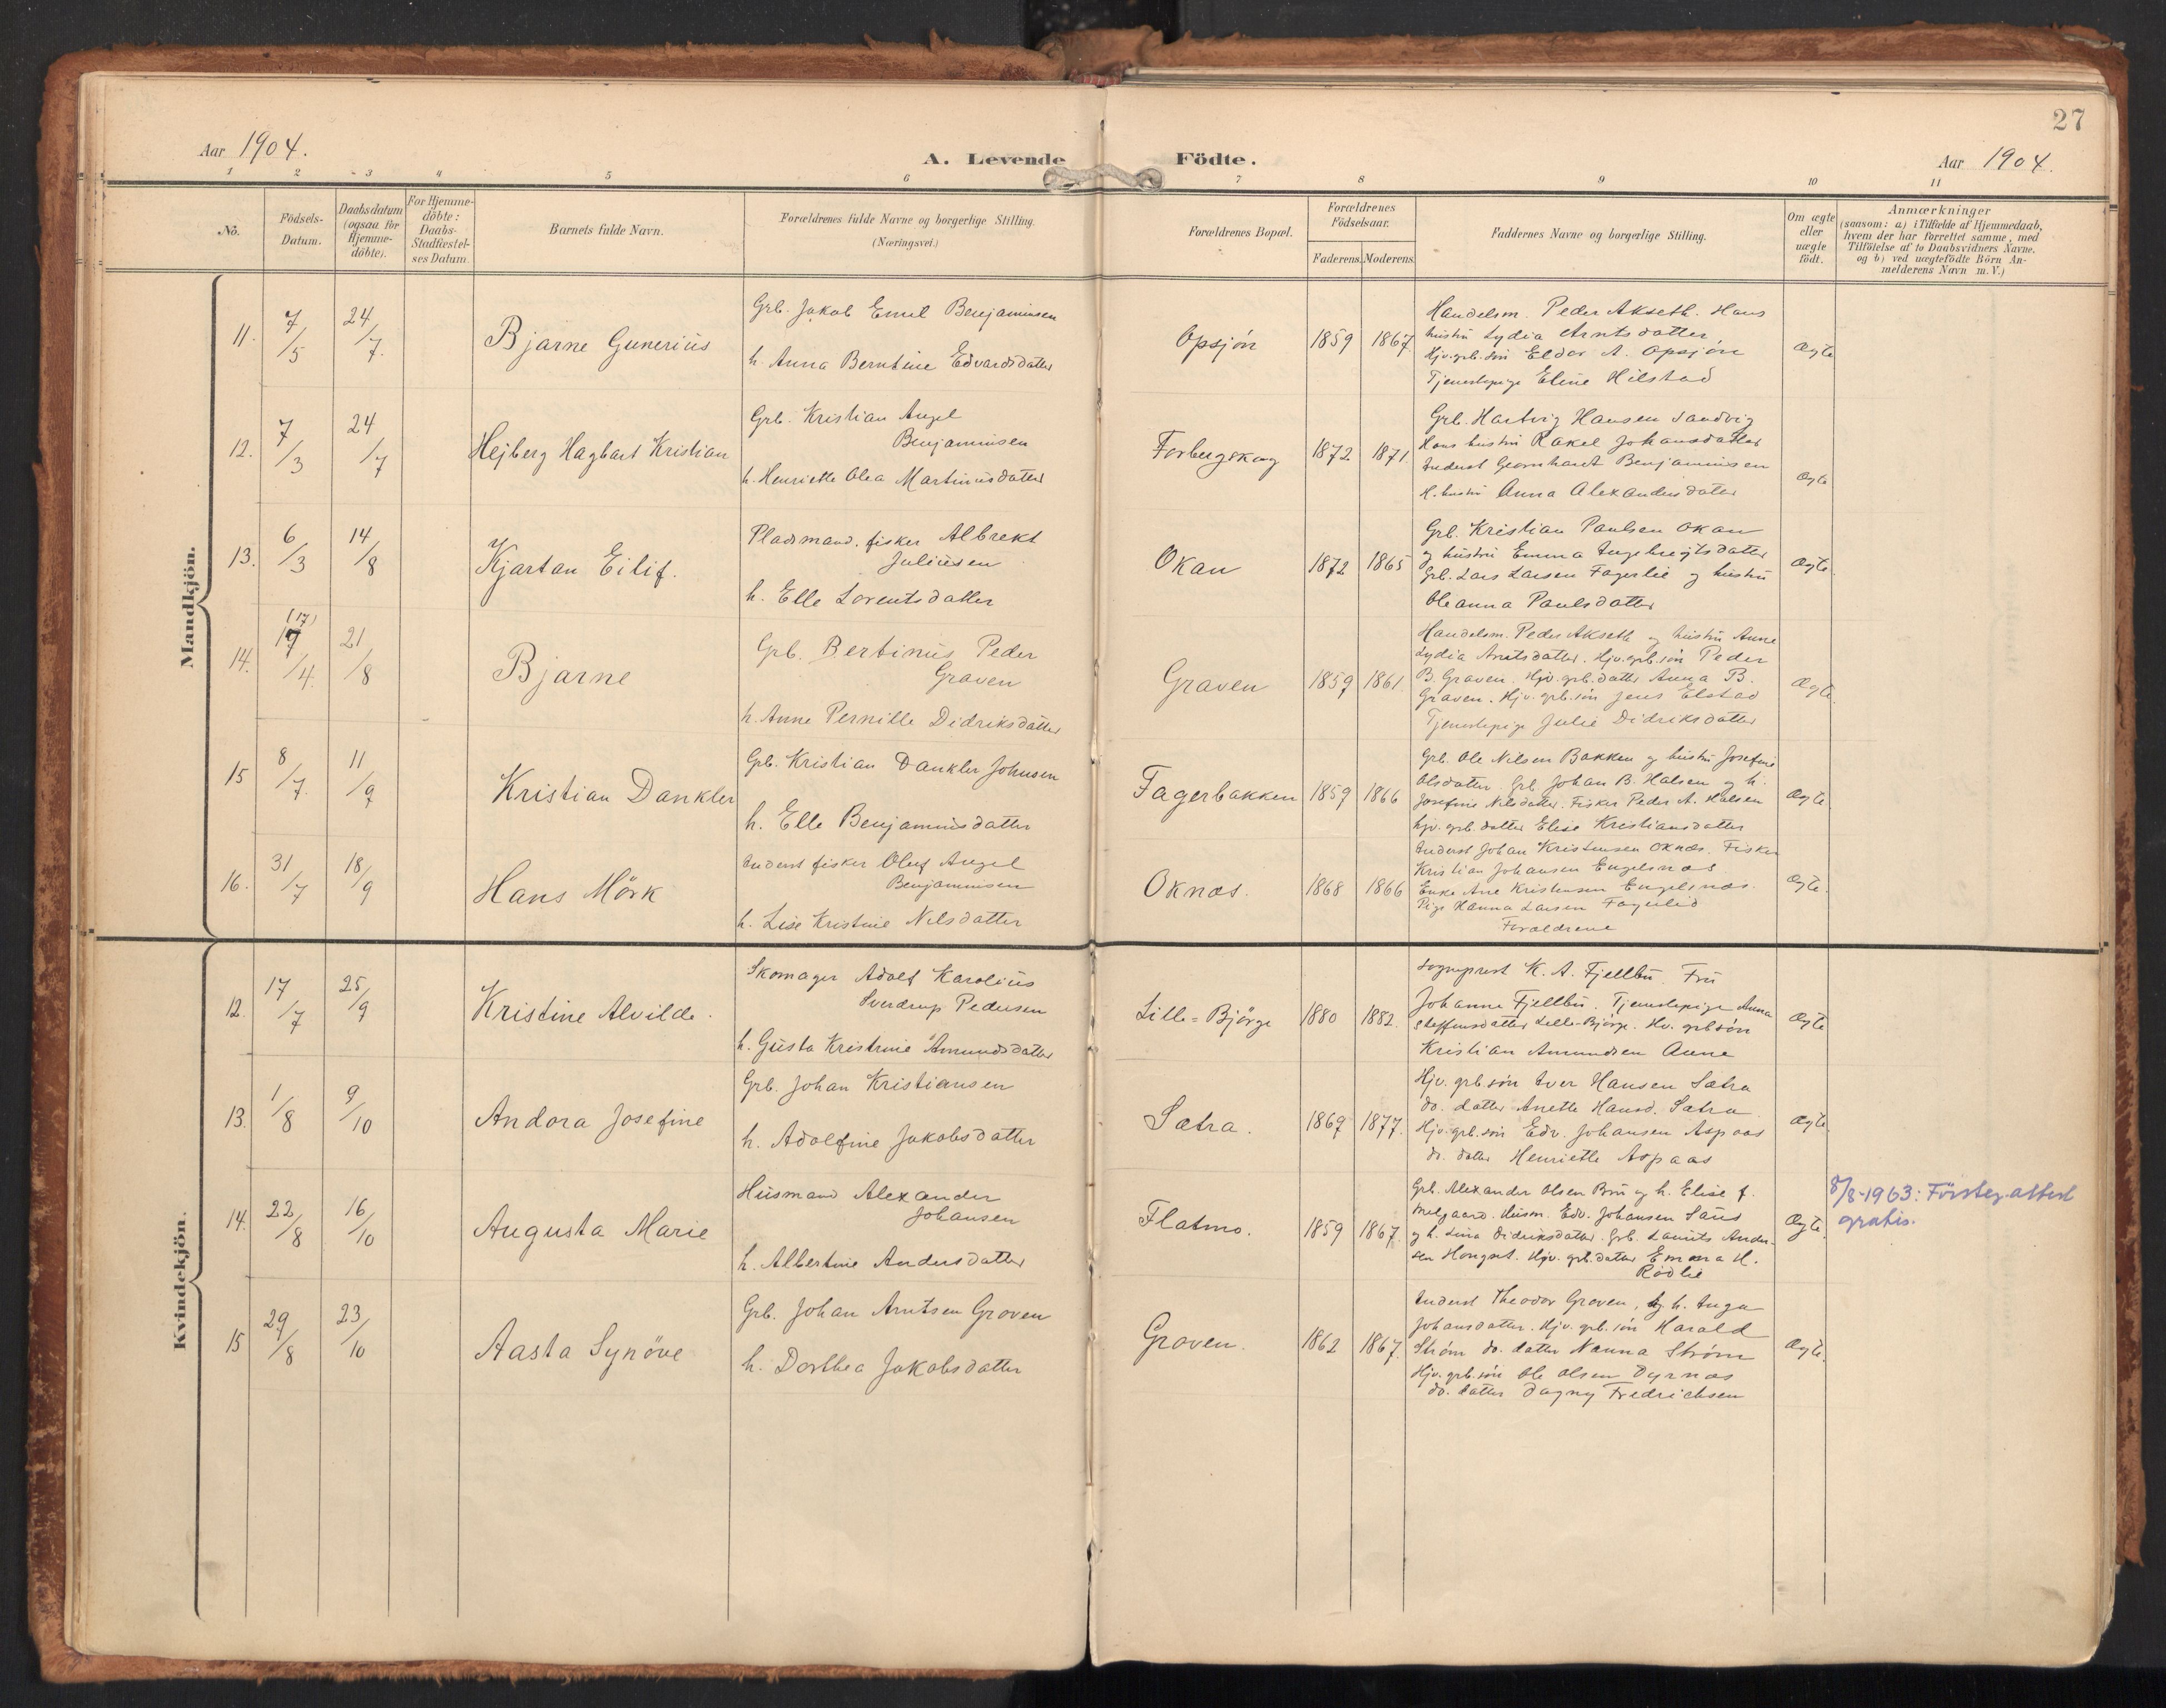 27
Aar 1904.
A. Levende Födte.
Aar 1904.
1 2 3 4 5 6 7 8 9 10 11
No.
Födsels-Datum.
Daabsdatum (ogsaa for Hjemme-döbte).
For Hjemme-döbte: Daabs-Stadfæstel-ses Datum
Barnets fulde Navn.
Forældrenes fulde Navne og borgerlige Stilling.
(Næringsvei.)
Forældrenes Bopæl.
Forældrenes Födselsaar.
Faderens. Moderens.
Faddernes Navne og borgerlige Stilling.
Om ægte eller uægte födt.
Anmærkninger
(saasom: a) i Tilfælde af Hjemmedaab,
hvem der har forrettet samme, med
Tilföielse af to Daabsvidners Navne.
og b) ved uægtefödte Börn An-
melderens Navn m. V.)
Mandkjön.
11. 7/5 24/7. Bjarne Gunerius
Grb. Jakob Emil Benjaminsen
h. Anna Berntine Edvardsdatter
Opsjön 1859 1867.
Handelsm. Peder Akseth. Hans
hustru Lydia Arntsdatter
Hjv. grb. sön Eldor A. Opsjön
Tjenestepige Eline Hilstad
Ægte
12. 7/3 24/7 Hejberg Hagbart Kristian
Grb. Kristian Angel
Benjaminsen
h. Henriette Olea Martinusdatter
Forbugskog 1872 1871
Grb. Hartvig Hansen Sandvig
Hans hustru Rakel Johansdatter
Inderst Geornhardt Benjaminsen
H. hustru Anna Alexandersdatter
Ægte
13. 6/3 14/8 Kjartan Eilif.
Pladsmand. fisker Albrekt
Juliusen
h. Elle Lorentsdatter
Okan 1872 1865
Grb. Kristian Paulsen Okan
og hustru Emma Ingebrigtsdatter
Grb. Lars Larsen Fagerlie og hustru
Oleanna Paulsdatter
Ægte
14. (17) 17/4. 21/8 Bjarne
Grb. Bertinus Peder
Graven
h. Anne Pernille Didriksdatter
Graven 1859 1861
Handelsm. Peder Akseth og hustru Anne
Lydia Arntsdatter. Hjv. grb. sön Peder
B. Graven. Hjv. grb. datter Anna B.
Graven. Hjv. grb. sön Jens Elstad
Tjenestepige Julie Didriksdatter
Ægte.
15 8/7. 11/9 Kristian Dankler
Grb. Kristian Dankler Johnsen
h. Elle Benjaminsdatter
Fagerbakken 1859 1866
Grb. Ole Nilsen Bakken og hustru Josefine
Olsdatter Grb. Johan B. Halsen og h.
Josefine Nilsdatter. Fisker Peder A. Halsen
hjv. grb. datter Elise Kristiansdatter
Ægte
16. 31/7 18/9 Hans Mörk
Inderst fisker Oluf Angel
Benjaminsen
h. Lise Kristine Nilsdatter
Oknæs. 1868 1866
Inderst Johan Kristensen Oknæs. Fisker
Kristian Johansen Engelsnæs
Enke Ane Kristensen Engelsnæs.
Pige Hanna Larsen Fagerlid
Forældrene
Ægte.
Kvindekjön.
12. 17/7 25/9 Kristine Alvilde.
Skomager Adolf Karolius
Sverdrup Pedersen
h. Gusta Kristine Amundsdatter
Lille-Björge 1880 1882.
Sogneprest K. A. Fjellbu. Fru
Johanne Fjellbu. Tjenestepige Anna
Steffensdatter Lille-Björge. Hv. grb sön
Kristian Amundsen Aune
Ægte
13. 1/8 9/10 Andora Josefine
Grb. Johan Kristiansen
h. Adolfine Jakobsdatter
Sætra. 1869 1877.
Hjv. grb sön Iver Hansen Sætra
do. datter Anette Hansd. Sætra
Hjv. grb. sön Edv. Johansen Aspaas
do. datter Henriette Aspaas
Ægte.
14. 22/8 16/10 Augusta Marie
Husmand Alexander
Johansen
h. Albertine Andersdatter
Flatmo. 1859 1867.
Grb. Alexander Olsen Bru og h. Elise f.
Melgaard. Husm. Edv. Johansen Saus
og h. Lina Didriksdatter. Grb. Lauits Ander-
sen Hongset. Hjv. grb. datter Emma H.
Rödlie
Ægte.
8/8-1963: Födsleg.attest
gratis.
15 29/8 23/10 Aasta Synöve
Grb. Johan Arntsen Groven
h. Dorthea Jakobsdatter
Groven. 1862 1867.
Inderst Theodor Groven, og h. Inga
Johansdatter. Hjv. grb. sön Harald
Ström do. datter Nanna Ström
Hjv. grb. sön Ole Olsen Dyrnæs
do. datter Dagny Fredrichsen
Ægte.